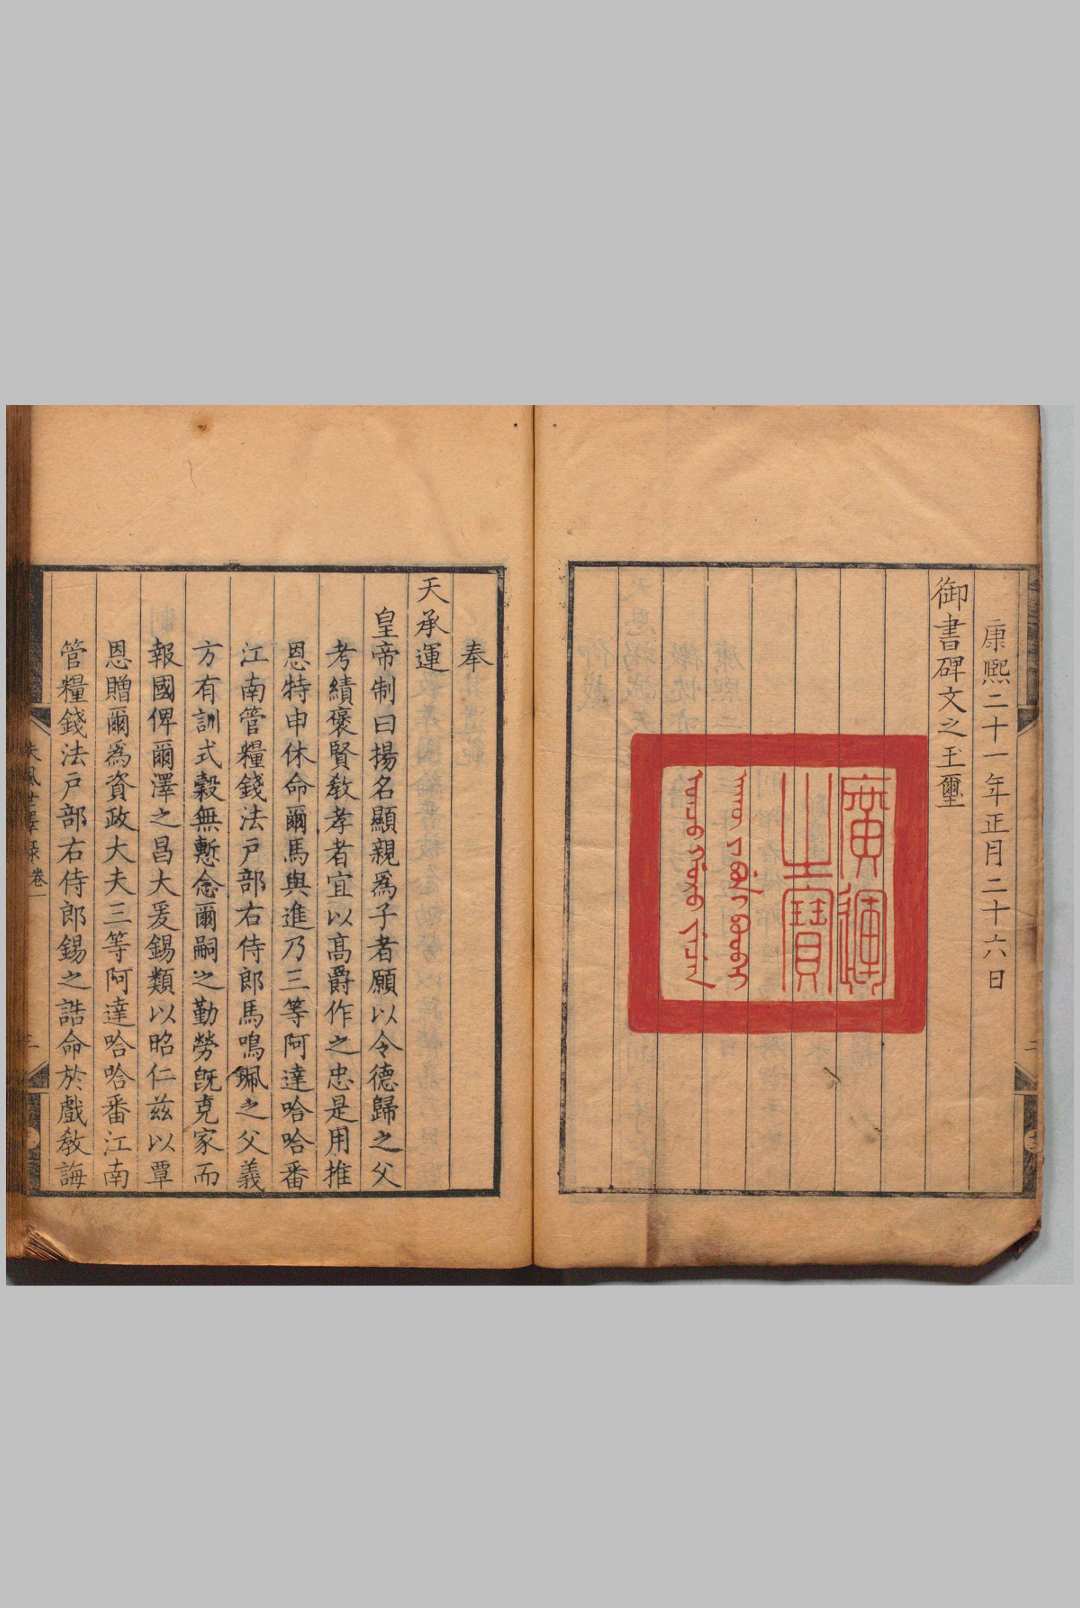 康熙二十一年正月二十六日
御書碑文之玉璽
廣運
之寶
奉
天承運
皇帝制曰揚名顯親爲子者願以令德歸之父
考績褒賢敎孝者宜以高爵作之忠是用推
恩特申休命爾馬與進乃三等阿達哈哈番
江南管糧錢法戶部右侍郎馬鳴珮之父義
方有訓式穀無慙念爾嗣之勤勞旣克家而
報國俾爾澤之昌大爰錫類以昭仁茲以覃
恩贈爾爲資政大夫三等阿達哈哈番江南
管糧錢法戶部右侍郎錫之誥命於戲敎誨
卷一